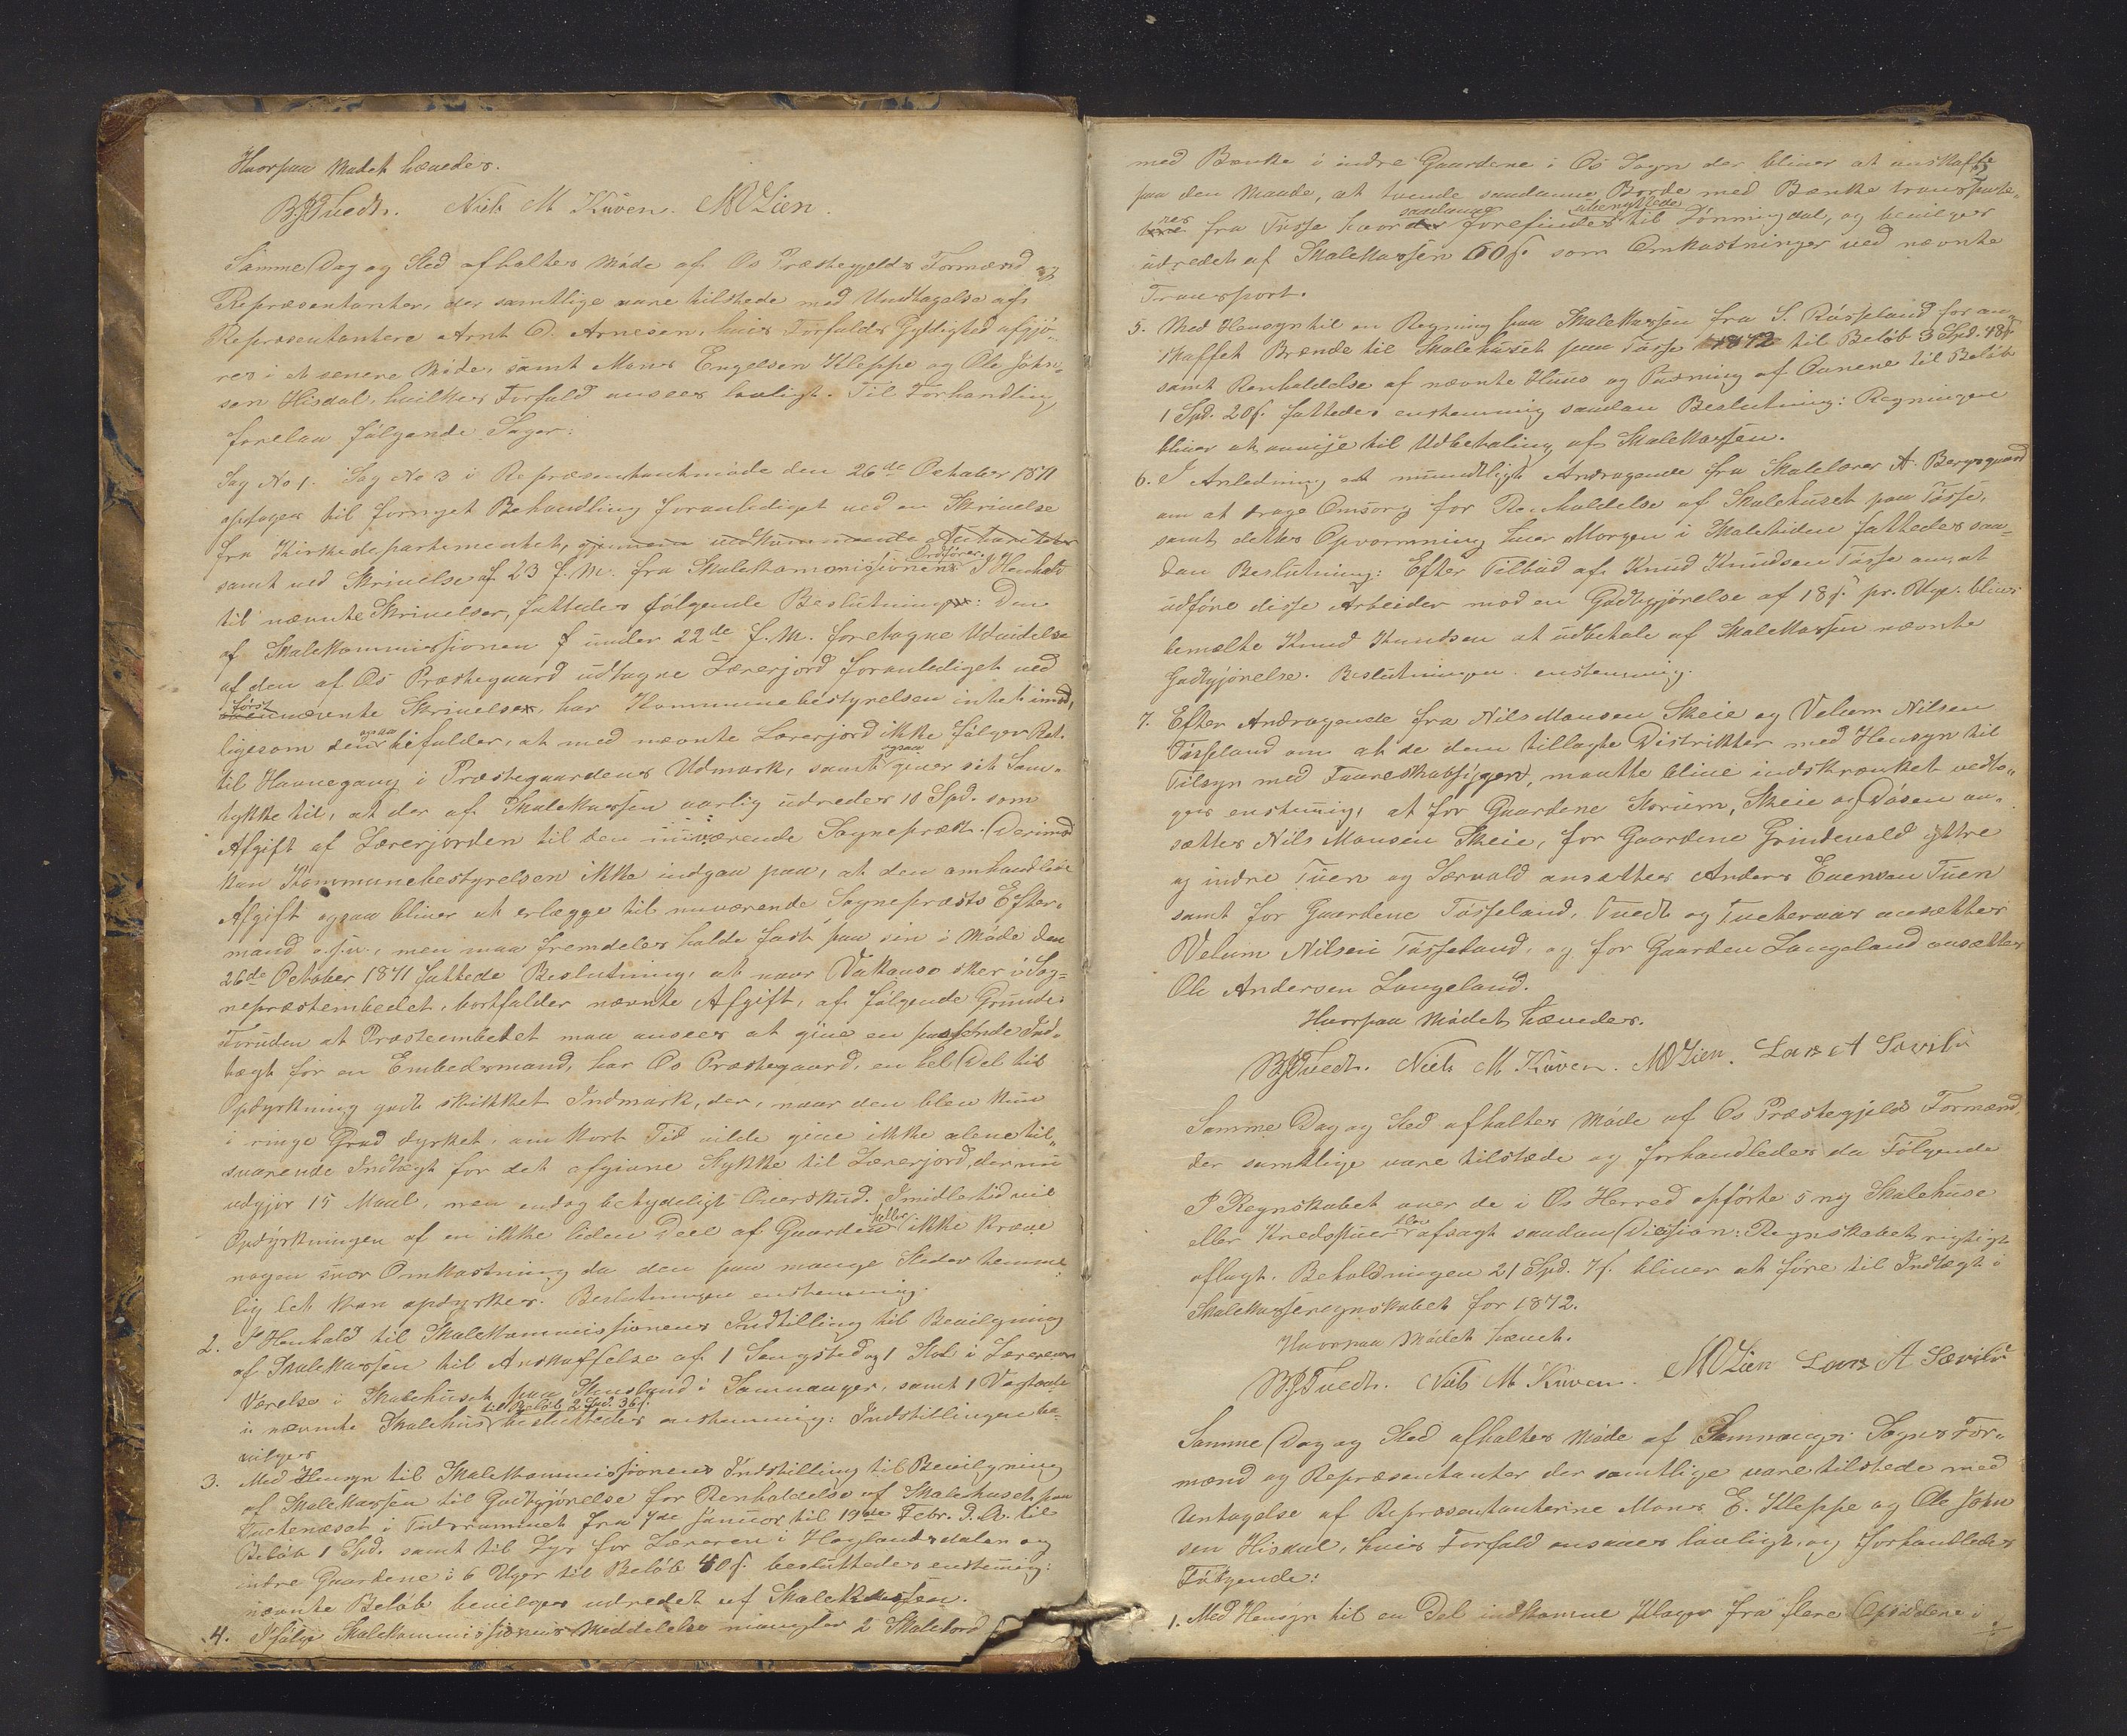 Hvorpaa Mødet hævedes.
B. J. Tvedt. Niels M Kuven. M O Lien.
Samme Dag og Sted afholdtes Møde af Os Præstegjelds Formænd og
Repræsentanter, der samtlige vare tilstede med Undtagelse af
Repræsentantene Arnt O. Arnesen, hvis Forfalds Gyldighed afgjø-
res i et senere Møde, samt Mons Engelsen Kleppe og Ole John-
sen Hisdal, hvilkes Forfald ansees lovligt. Til Forhandling
forelaa følgende Sager:
Sag No 1. Sag No 3 i Repræsentantmøde den 26de October 1871
optoges til fornyet Behandling foranlediget ved en Skrivelse
fra Kirkedepartementet, gjennem vedkommende Autoriteter
samt ved Skrivelse af 23 f. M. fra Skolekommissionens Ordfører. I Henhold
til nævnte Skrivelser, fattedes følgende Beslutning: Den
af Skolekommissionen under 22de f. M. foretagne Udvidelse
af den af Os Præstegaard udtagne Lærerjord foranlediget ved
først nævnte Skrivelse, har Kommunebestyrelsen intet imod,
ligesom den ogsaa bifalder, at med nævnte Lærerjord ikke følger Ret
til Havnegang i Præstegaardens Udmark, samt ogsaa giver sit Sam-
tykke til, at der af Skolekassen aarlig udredes 10 Spd. som
Afgift af Lærerjorden til den nuværende Sognepræst. Derimod
kan Kommunebestyrelsen ikke indgaa paa, at den omhandlede
Afgift ogsaa bliver at erlægge til nuværende Sognepræsts Efter-
mand o.s.v., men maa fremdeles holde fast paa sin i Møde den
26de October 1871 fattede Beslutning, at naar Vakanse sker i Sog-
nepræstembedet, bortfalder nævnte Afgift, af følgende Grunde:
Foruden at Præsteembedet maa ansees at give en passende Ind-
tægt for en Embedsmand, har Os Præstegaard, en hel Del til
Opdyrkning godt skikket Indmark, der, naar den blev kun
i ringe Grad dyrket, om kort Tid vilde give ikke alene til-
svarende Indtægt for det afgivne Stykke til Lærerjord, der nu
udgjør 15 Maal, men endog betydeligt Overskud. Imidlertid vil
Opdyrkningen af en ikke liden Deel af Gaarden heller ikke kræve
nogen svær Omkostning da den paa mange Steder temme-
lig let kan opdyrkes. Beslutningen enstemmig.
2. I Henhold til Skolekommissionens Indstilling til Bevilgning
af Skolekassen til Anskaffelse af 1 Sengsted og 1 Stol i Lærerens
Værelse i Skolehuset paa i Samnanger, samt 1 Vægtavle
i nævnte Skolehus til Beløb 2 Spd. 36 s. besluttedes enstemmig: Indstillingen be-
vilges
3. Med Hensyn til Skolekommissionens Indstilling til Bevilgning
af Skolekassen til Godtgjørelse for Renholdelse af Skolehuset paa
Tuctenæset i Tidsrummet fra 7de Januar til 19de Febr. d. A. til
Beløb 1 Spd. samt til Lys for Læreren i Haglandsdalen og
indre Gaardene i 6 Uger til Beløb 40 s. besluttedes enstemmig:
nævnte Beløb bevilges udredet af Skolekassen.
4. Ifølge Skolekommissionens Meddelelse mangler 2 Skolebord
med Bænke i indre Gaardene i Os Sogn der bliver at anskaffe
paa den Maade, at tvende saadanne Borde med Bænke transporte-
res fra Tøsse hvor saadanne forefindes ubenyttede til Lønningdal, og bevilges
udredet af Skolekassen 60 s. som Omkostninger ved nævnte
Transport.
5. Med Hensyn til en Regning paa Skolekassen fra S. Røseland for an-
skaffet Brænde til Skolehuset paa Tøsse 1872 til Beløb 3 Spd. 48 s
samt Renholdelse af nævnte Huus og Pudsning af Ovnene til Beløb
1 Spd. 20 s. fattedes enstemmig saadan Beslutning: Regningene
bliver at anvise til Udbetaling af Skolekassen.
6. I Anledning et mundtligt Andragende fra Skolelærer A. Bergsgaard
om at drage Omsorg for Renholdelse af Skolehuset paa Tøsse,
samt dettes Opvarmning hver Morgen i Skoletiden fattedes saa-
dan Beslutning: Efter Tilbud af Knud Knudsen Tøsse om, at
udføre disse Arbeider mod en Godtgjørelse af 18 s. pr. Uge, bliver
bemælte Knud Knudsen at udbetale af Skolekassen nævnte
Godtgjørelse. Beslutningen enstemmig.
7. Efter Andragende fra Nils Monsen Skeie og Velum Nilsen
Tøsseland om at de dem tillagte Distrikter med Hensyn til
Tilsyn med Faareskabsygen, maatte blive indskrænket vedto-
ges enstemmig, at for Gaardene Storum, Skeie og Døsen an-
sættes Nils Monsen Skeie, for Gaardene Grindevold ydre
og indre Tuen og Sørvold ansættes Anders Evensen Tuen
samt for Gaardene Tøsseland, Tvedt og Tveteraas ansættes
Velum Nilsen Tøsseland, og for Gaarden Langeland ansættes
Ole Andersen Langeland.
Hvorpaa Mødet hævedes.
B J Tvedt. Niels M. Kuven. M O Lien. Lars A Sævild
Samme Dag og Sted afholdtes Møde af Os Præstegjelds Formænd,
der samtlige vare tilstede og forhandledes da Følgende
I Regnskabet over de i Os Herred opførte 5 ny Skolehuse
eller Kredsstuer blev afsagt saadan Decision: Regnskabet rigtigt
aflagt. Beholdningen 21 Spd. 7 s. bliver at føre til Indtægt i
Skolekasseregnskabet for 1872.
Hvorpaa Mødet hævet.
B. J Tvedt. Niels M. Kuven. M O Lien Lars A Sævild
Samme Dag og Sted afholdtes Møde af Samnanger Sogns For-
mænd og Repræsentanter der samtlige vare tilstede med
Untagelse af Repræsentanterne Mons E. Kleppe og Ole John
sen Hisdal, hvis Forfald ansaaes lovligt, og forhandledes
Følgende:
1. Med Hensyn til en Del indkomne Klager fra flere Opsiddere i